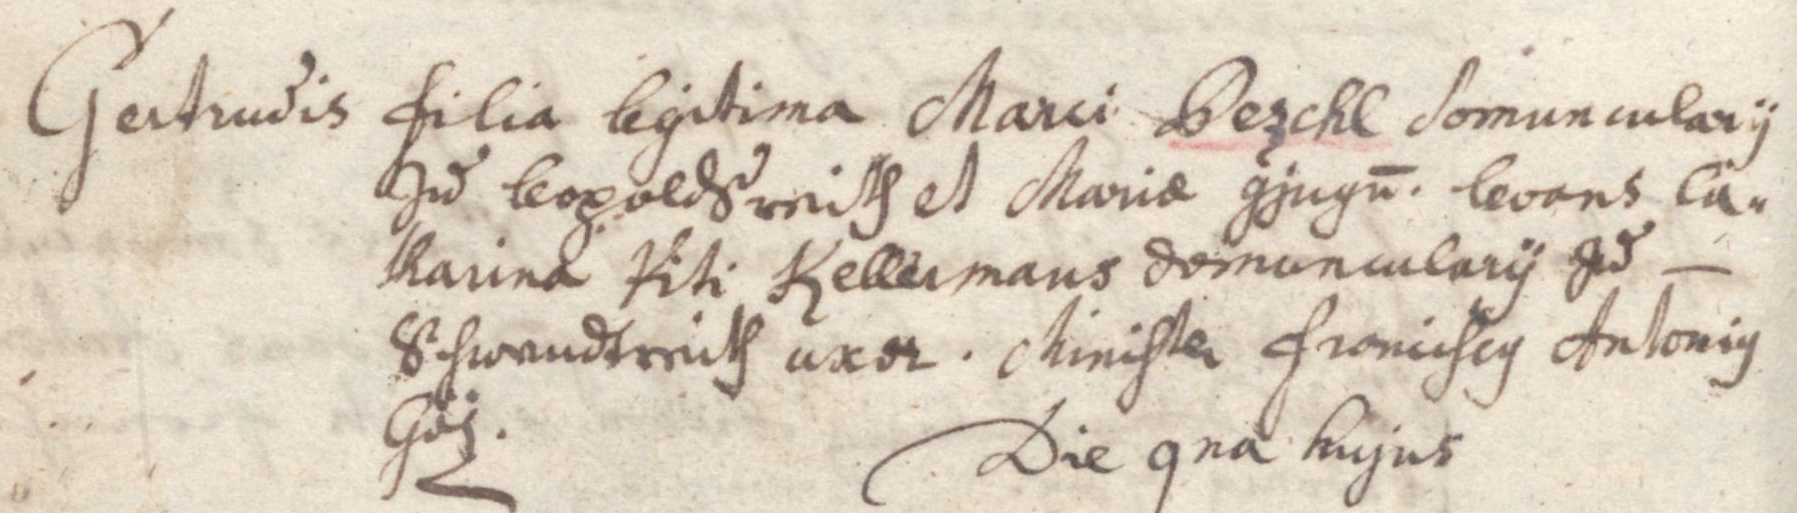 Gertrudis filia legitima Marci Pezchl domuncularij
Zu Leopoldsreuth et Mariæ gjugū. levans Ca-
tharina Viti Kellermans domuncularij Zu —
Schwendtreuth uxor. Minister Franciscq Antoniq
Göz.
Die 9na hujus